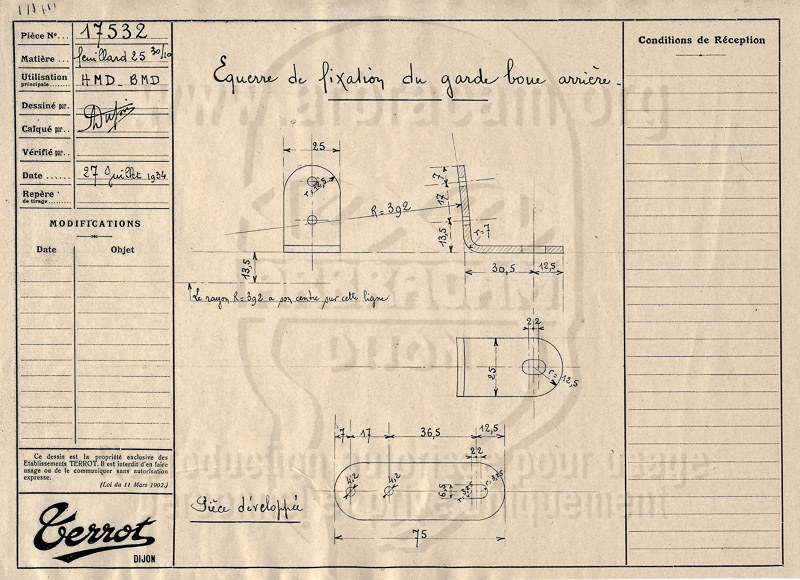 Pièce No... 17532
Matière... feuillard 25 30/10
Utilisation principale... HMD_BMD
Dessiné par.
Calqué par... Dufour
Vérifié par...
Date...... 27 Juillet 1934
Repère de tirage...
MODIFICATIONS
Date Objet
Equerre de fixation du garde boue arrière_
Conditions de Réception
www. .org
25
r=12,5
R=392
7
17
13,5
r=7
30,5 12,5
13,5
Le rayon R=392 a son centre sur cette ligne
DIJON
2 2
25
r=12,5
7 17 36,5 12,5
2 2
4,2 4,2
6,5
r=3,25 r=3,25
75
Pièce développée
Ce dessin est la propriété exclusive des
Etablissements TERROT. Il est interdit d'en faire
usage ou de le communiquer sans autorisation
expresse.
(Loi du 11 Mars 1902.)
Terrot
DIJON